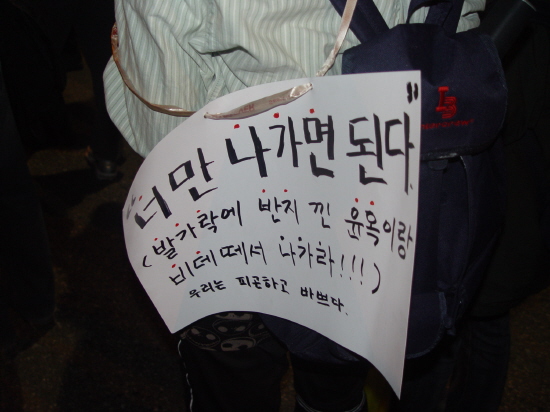 "너만 나가면 된다"
(발가락에 반지 낀 윤옥이랑
비데 떼서 나가라!!!)
우리는 피곤하고 바쁘다.